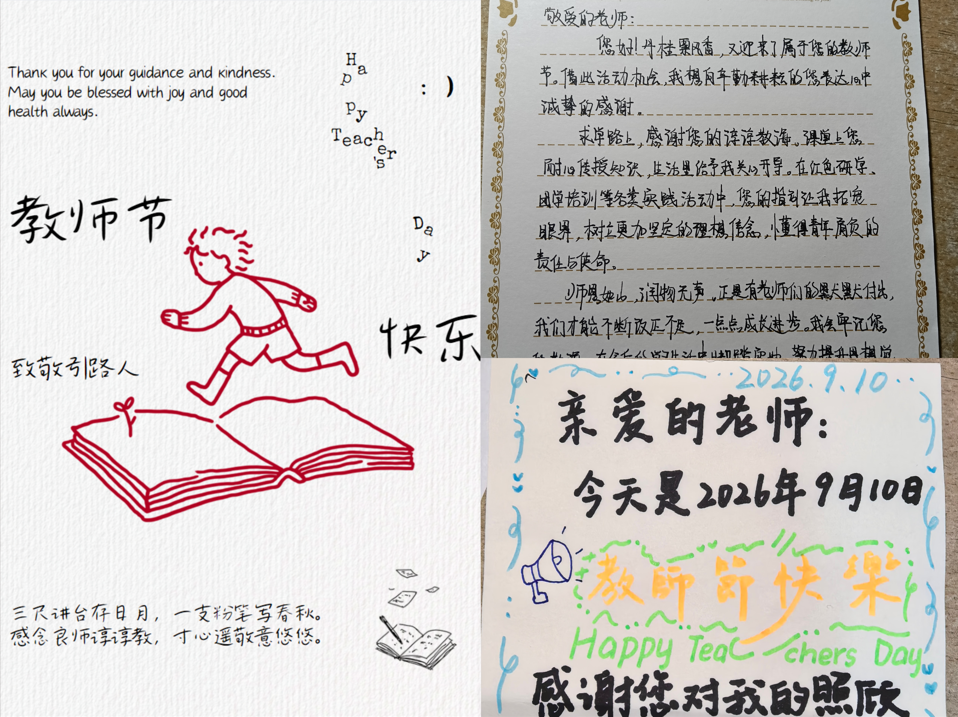 Thank you for your guidance and kindness.
May you be blessed with joy and good
health always.
Happy
Teacher's
Day
: )
教师节
快乐
致敬引路人
三尺讲台存日月，一支粉笔写春秋。
感念良师谆谆教，寸心遥敬意悠悠。
敬爱的老师：
您好！丹桂飘香，又迎来了属于您的教师
节。借此活动机会，我想向辛勤耕耘的您表达心中
诚挚的感谢。
求学路上，感谢您的谆谆教诲。课堂上您
耐心传授知识，生活里给予我关心开导。在红色研学、
团学培训等各类实践活动中，您的指引让我拓宽
眼界，树立更加坚定的理想信念，懂得青年肩负的
责任与使命。
师恩如山，润物无声。正是有老师们的默默付出，
我们才能不断改正不足，一点点成长进步。我会牢记您
2026.9.10
亲爱的老师：
今天是2026年9月10日
教師節快樂
Happy Teachers Day
感谢您对我的照顾